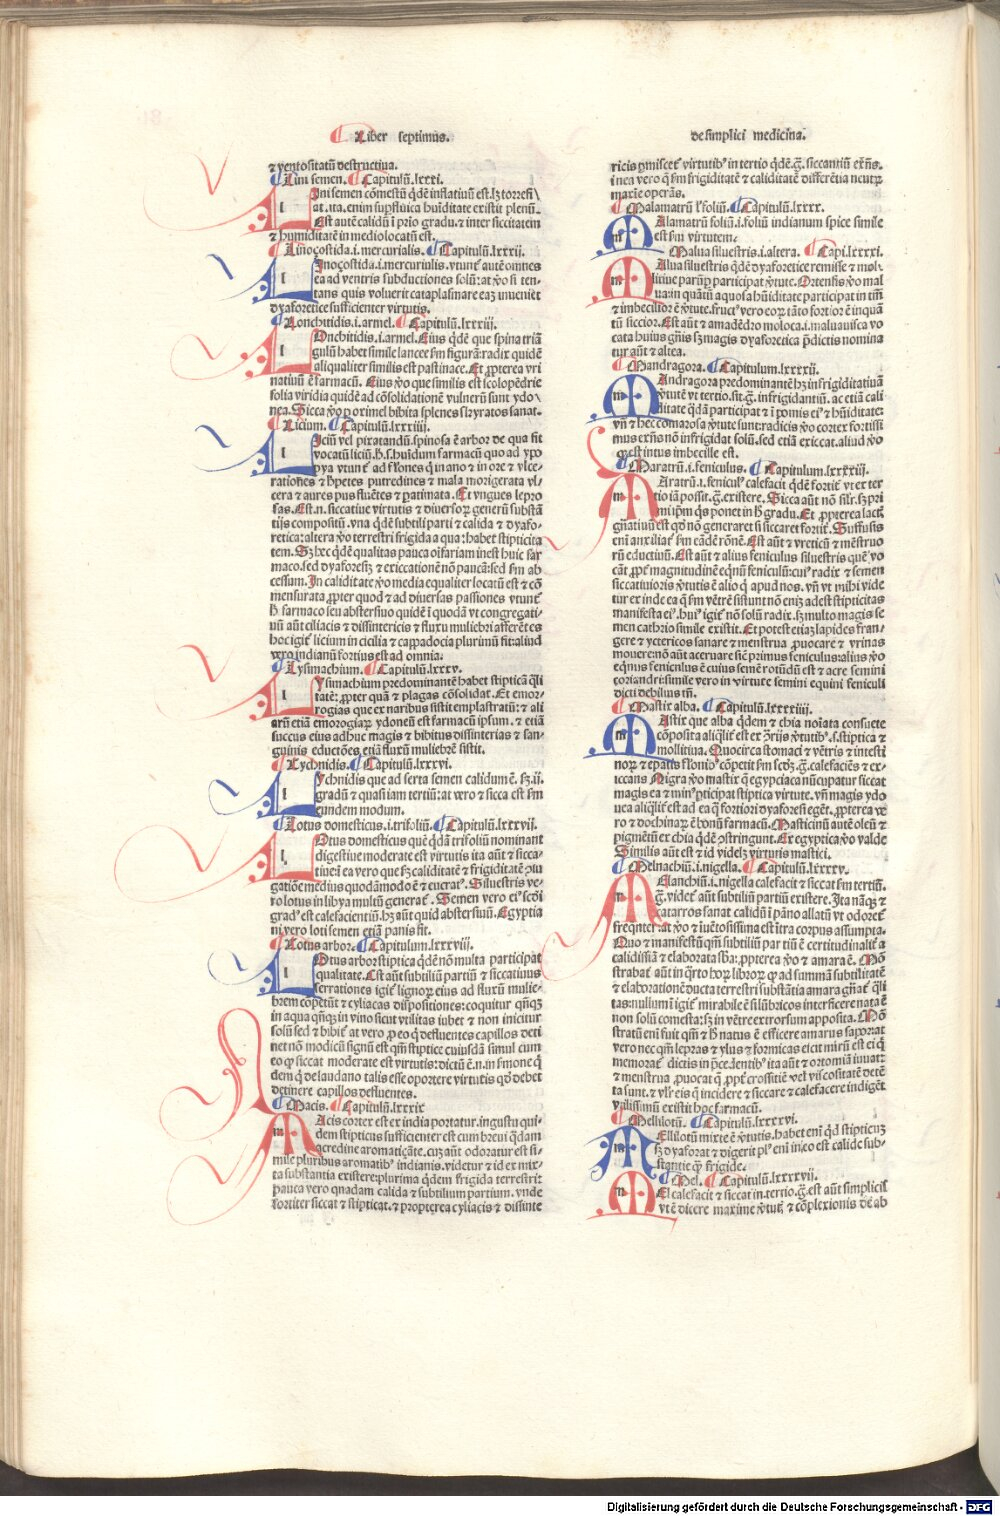 Liber septimus.
de simplici medicina.
⁊ ventositatū destructiua.
Lini semen. Capitulū.lxxxi.
Ini semen cōmestū qdē inflatiuū est.lꝫ torrefi
at.ita.enim supflua hūiditate existit plenū.
Est autē calidū ī prio gradu.⁊ inter siccitatem
⁊ humiditatē in medio locatū est.
Linoçostida.i.mercurialis. Capitulū.lxxxij.
Inoçostida.i.mercurialis.vtunt autē omnes
ea ad ventris subductiones solū:at vo si ten-
tans quis voluerit cataplasmare eaꝫ inueniet
dyaforetice sufficienter virtutis.
Lonchitidis.i.armel. Capitulū.lxxxiij.
Onchitidis.i.armel. Eius qdē que spina triā
gulū habet simile lancee fm figurā:radix quidē
aliqualiter similis est pastinace. Et ꝓpterea vri
natiuū ē farmacū. Eius vo que similis est scolopēdrie
folia viridia quidē ad cōsolidationē vulnerū sunt ydo
nea. Sicca vo ⁊ oximel bibita splenes scyratos sanat.
Licium. Capitulū.lxxxiiij.
Iciū vel pixatandū.spinosa ē arbor de qua fit
vocatū liciū.h.f.huīdum farmacū quo ad ypo
pya vtunt ad flones q in ano ⁊ in ore ⁊ vlce-
rationes ⁊ hpetes putredines ⁊ mala morigerata vl-
cera ⁊ aures pus fluētes ⁊ patimata. Et vngues lepro
sas. Est.n.siccatiue virtutis ⁊ diuersoꝝ generū substā
tijs compositū. vna qdē subtili parti ⁊ calida ⁊ dyafo-
retica:altera vo terrestri frigida a qua:habet stipticita
tem. Sꝫ hec qdē qualitas pauca oīfariam inest huic far
maco.sed dyaforesꝫ ⁊ exiccationē nō paucā:sed fm ab
cessum. In caliditate vo media equaliter locatū est ⁊ cō
mensurata ꝓpter quod ⁊ ad diuersas passiones vtunt
h farmaco seu abstersiuo quidē ī quodā vt congregati-
uū aūt ciliacis ⁊ dissintericis ⁊ fluxu muliebri afferētes
hoc igit licium in cilicia ⁊ cappadocia plurimū fit:aliud
vero indianū fortius est ad omnia.
Lysimachium. Capitulū.lxxxv.
Ysimachium predominantē habet stipticā qli
tatē:ꝓpter quā ⁊ plagas cōsolidat. Et emor-
rogias que ex naribus fiūt emplastratū: ⁊ ali
arū etiā emorogiaꝝ ydoneū est farmacū ipsum. ⁊ etiā
succus eius adhuc magis ⁊ bibitus dissinterias ⁊ san-
guinis eductōes etiā fluxū muliebrē sistit.
Lychnidis. Capitulū.lxxxvi.
Ychnidis que ad serta semen calidum ē. fꝫ.ij.
gradū ⁊ quasi iam tertiū:at vero ⁊ sicca est fm
eundem modum.
Lotus domesticus.i.trifoliū. Capitulū.lxxxvij.
Otus domesticus quē qdā trifoliū nominant
digestiue moderate est virtutis ita aūt ⁊ sicca-
tiue:ī ea vero que fꝫ caliditatē ⁊ frigiditatē ꝯiu
gatiōe medius quodāmodo ē ⁊ eucrat. Siluestris ve-
ro lotus in libya multū generat. Semen vero ei scdi
grad est calefacientiū.hꝫ aūt quid abstersiuū. Egyptia
ni vero loti semen etiā panis fit.
Lotus arbor. Capitulum.lxxxviij.
Otus arbor stiptica qdē nō multa participat
qualitate. Est aūt subtiliū partiū ⁊ siccatiuus
serrationes igit lignoꝝ eius ad fluxū mulie-
brem cōpetūt ⁊ cyliacas dispositiones:coquitur qūqꝫ
in aqua qūqꝫ in vino sicut vtilitas iubet ⁊ non inicitur
solū sed ⁊ bibit at vero ꝓ eo ꝙ defluentes capillos deti
net nō modicū signū est qm stiptice cuiusdā simul cum
eo ꝙ siccat moderate est virtutis:dictū ē.n.in fmone q̄
dem q̄ de laudano talis esse oportere virtutis qd debet
detinere capillos defluentes.
Macis. Capitulū.lxxxix
Acis cortex est ex india portatur.in gustu qui-
dem stipticus sufficienter est cum breui qdam
acredine aromatiçāte.cuꝫ aūt odoratur est si-
mile pluribus aromatib indianis.videtur ⁊ id ex mix-
ta substantia existere:plurima qdem frigida terrestri:
pauca vero quadam calida ⁊ subtilium partium. vnde
fortiter siccat ⁊ stipticat.⁊ propterea cyliacis ⁊ dissinte
ricis ꝑmiscet virtutib in tertio qdē.g.siccantiū exns.
in ea vero q̄ fm frigiditatē ⁊ caliditatē differētia neutꝝ
maxie operās.
Malamatrū l foliū. Capitulū.lxxxx.
Alamatrū foliū.i.foliū indianum spice simile
est fm virtutem.
Malua siluestris.i.altera. Capi.lxxxxi.
Alua siluestris qdē dyaforetice remisse ⁊ mol-
litiue parūp participat vtute. Ortensis vo mal
ua:in quātū aquosa hūiditate participat in tm
⁊ imbecillior ē vtute.fruct vero eoꝝ tāto fortior ē inquā
tū siccior. Est aūt ⁊ amadēdro moloca.i.maluauisca vo
cata huius gnis sꝫ magis dyaforetica pdictis nomina
tur aūt ⁊ altea.
Mandragora. Capitulum.lxxxxij.
Andragora predominante hꝫ infrigidatiuā
vtutē vt tertio.sit.g.infrigidantiū. ac etiā cali
ditate qdā participat ⁊ ī pomis ei ⁊ hūiditate:
vn ⁊ hec comarosa vtute sunt:radicis vo cortex fortissi
mus exns nō infrigidat solū.sed etiā exiccat.aliud vo
qd est intus imbecille est.
Maratrū.i.feniculus. Capitulum.lxxxxiij.
Aratrū.i.fenicul calefacit qdē fortit vt ex ter
tio iā possit.g.existere. Sicca aūt nō silr.sꝫ pri
mi ipm qs ponet in h gradu. Et ꝓpterea lactꝭ
gnatiuū est qd nō generaret si siccaret fortit. Suffusis
eni auxiliat fm eādē rōnē. Est aūt ⁊ vreticū ⁊ mēstruo
rū eductiuū. Est aūt ⁊ alius feniculus siluestris quē vo
cāt ꝓpt magnitudinē eqnū feniculū:cui radix ⁊ semen
siccatiuioris vtutis ē alio q̄ apud nos. vn vt mihi vide
tur ex inde ea q̄ fm vētrē sistunt nō eniꝫ adest stipticitas
manifesta ei. hui igit nō solū radix.sꝫ multo magis se
men cathrio simile existit. Et potest etiaꝫ lapides fran
gere ⁊ yctericos sanare ⁊ menstrua ꝓuocare ⁊ vrinas
mouere:nō aūt aceruare sic primus feniculus:alius vo
eqnus feniculus ē cuius semē rotūdū est ⁊ acre semini
coriandri simile vero in virtute semini equini feniculi
dicti debilius tn.
Mastix alba. Capitulū.lxxxxiiij.
Astix que alba qdem ⁊ chia noīata consuete
cōposita aliqlit est ex ꝯrijs vtutib.s.stiptica ⁊
mollitiua. Quocirca stomaci ⁊ vētris ⁊ intesti
noꝝ ⁊ epatis flonib cōpetit fm scdꝫ.g.calefaciēs ⁊ ex-
iccans Nigra vo mastix q̄ egypciaca nūcupatur siccat
magis ea ⁊ min pticipat stiptica virtute. vn magis ydo
nea aliqlit est ad ea q̄ fortiori dyaforesi egēt. ꝓpterea ve
ro ⁊ dochinaꝝ ē bonū farmacū. Masticinū autē oleū ⁊
pigmētū ex chia qdē ꝯstringunt. Ex egyptica vo valde
Similis aūt est ⁊ id videlꝫ virtutis mastici.
Melnachiū.i.nigella. Capitulū.lxxxxv.
Elanchiū.i.nigella calefacit ⁊ siccat fm tertiū.
g. videt aūt subtiliū partiū existere. Ita nāqꝫ ⁊
catarros sanat calidū ī pāno allatū vt odoret
freqnter:at vo ⁊ iuētosissima est īfra corpus assumpta.
Quo ⁊ manifestū qm subtiliū partiū ē certitudinalit a
calidissīa ⁊ elaborata sba:ꝓpterea vo ⁊ amara ē. Mō
strabat aūt in qrto hoꝝ libroꝝ ꝙ ad summā subtilitatē
⁊ elaborationē ducta terrestri substātia amara gnat qli
tas:nullum igit mirabile ē si lūbricos interficere nata ē
non solū comesta:sꝫ in vētre extrorsum apposita. Mō
stratū eni fuit qm h natus ē efficere amarus saporat
vero nec qm lepras ⁊ ylus ⁊ formicas eicit mirū est ei q
memorat dictis in pcedentib ita aūt ⁊ ortomiā iuuat:
⁊ menstrua ꝓuocat q ꝓpt grossitiē vel viscositatē detē
ta sunt.⁊ vlr eis q incidere ⁊ siccare ⁊ calefacere indiget
vtilissimū existit hoc farmacū.
Mellilotū. Capitulū.lxxxxvi.
Ellilotū mixte ē vtutis.habet eni qd stipticuꝫ
sꝫ dyaforat ⁊ digerit pl eni ineo est calide sub-
stantie q̄ frigide.
Mel. Capitulū.lxxxxvij.
El calefacit ⁊ siccat in.tertio.g.est aūt simplicis
vt ē dicere maxime vtut ⁊ cōplexionis dē ab
Digitalisierung gefördert durch die Deutsche Forschungsgemeinschaft - DFG